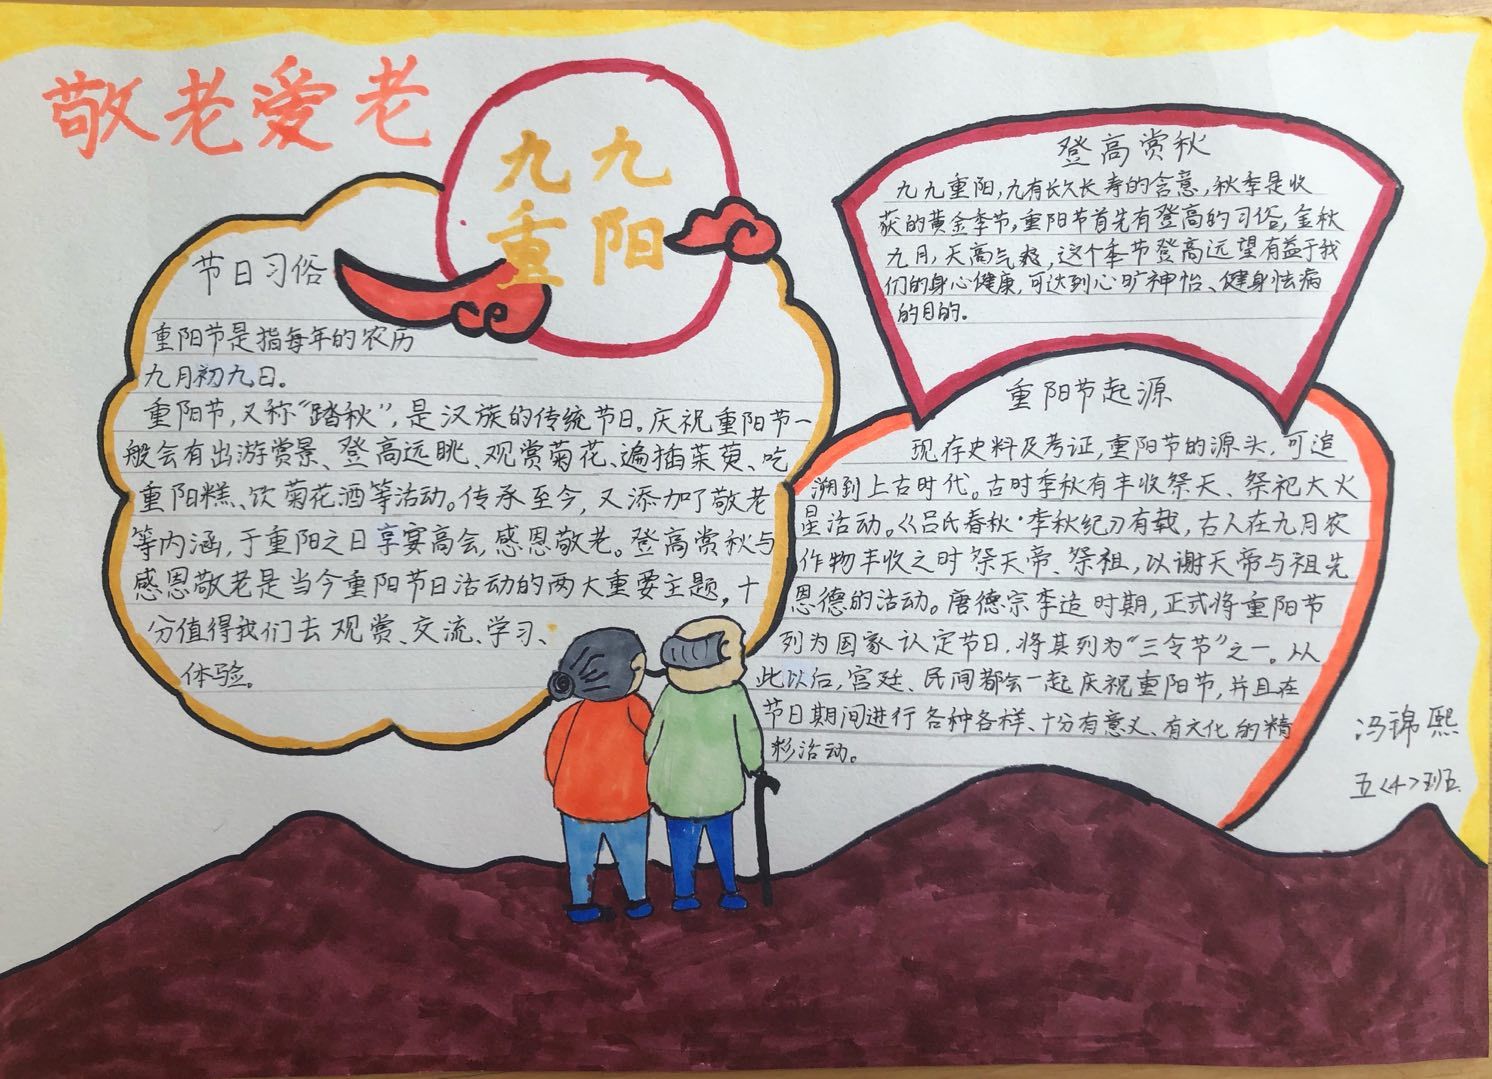 敬老爱老
九九
重阳
节日习俗
重阳节是指每年的农历
九月初九日。
重阳节，又称“踏秋”，是汉族的传统节日。庆祝重阳节一
般会有出游赏景、登高远眺、观赏菊花、遍插茱萸、吃
重阳糕、饮菊花酒等活动。传承至今，又添加了敬老
等内涵，于重阳之日享宴高会，感恩敬老。登高赏秋与
感恩敬老是当今重阳节日活动的两大重要主题，十
分值得我们去观赏、交流、学习、
体验。
登高赏秋
九九重阳，九有长久长寿的含意，秋季是收
获的黄金季节，重阳节首先有登高的习俗，金秋
九月，天高气爽，这个季节登高远望有益于我
们的身心健康，可达到心旷神怡、健身怯病
的目的。
重阳节起源
现存史料及考证，重阳节的源头，可追
溯到上古时代。古时季秋有丰收祭天、祭祀大火
星活动。《吕氏春秋·季秋纪》有载，古人在九月农
作物丰收之时祭天帝、祭祖，以谢天帝与祖先
恩德的活动。唐德宗李造时期，正式将重阳节
列为国家认定节日，将其列为“三令节”之一。从
此以后，宫廷、民间都会一起庆祝重阳节，并且在
节日期间进行各种各样、十分有意义、有文化的精
彩活动。
冯锦熙
五<4>班